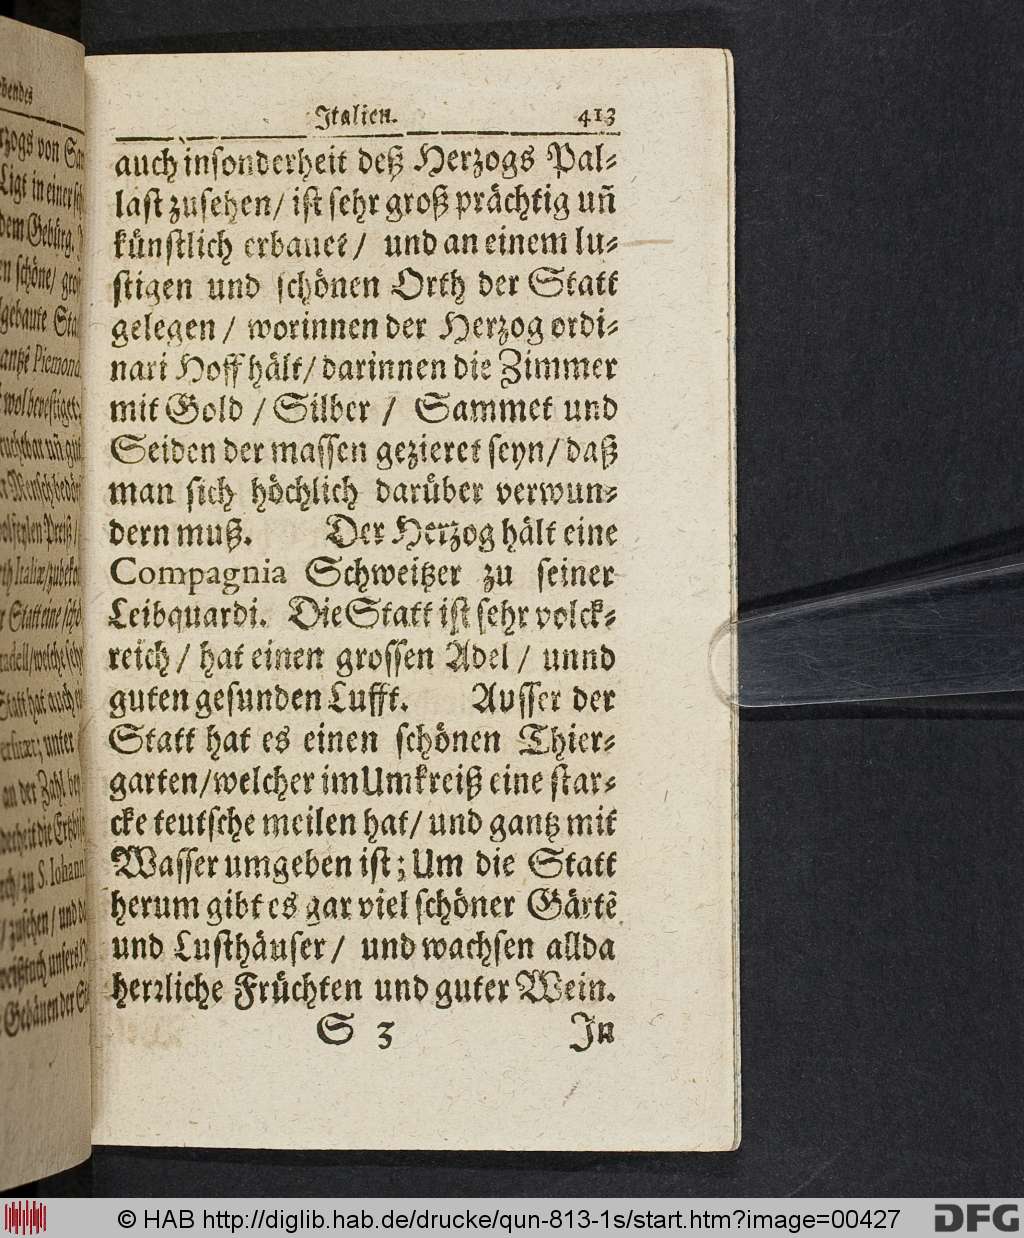 Italien. 413
auch insonderheit deß Herzogs Pal-
last zusehen/ ist sehr groß prächtig uñ
künstlich erbauet/ und an einem lu-
stigen und schönen Orth der Statt
gelegen / worinnen der Herzog ordi-
nari Hoff hält/ darinnen die Zimmer
mit Gold / Silber / Sammet und
Seiden der massen gezieret seyn/ daß
man sich höchlich darüber verwun-
dern muß. Der Herzog hält eine
Compagnia Schweitzer zu seiner
Leibquardi. Die Statt ist sehr volck-
reich / hat einen grossen Adel / unnd
guten gesunden Lufft. Ausser der
Statt hat es einen schönen Thier-
garten/welcher im Umkreiß eine star-
cke teutsche meilen hat/ und gantz mit
Wasser umgeben ist; Um die Statt
herum gibt es gar viel schöner Gärtẽ
und Lusthäuser / und wachsen allda
herꝛliche Früchten und guter Wein.
S 3 In
zogs von
Ligt in einer
dem Gebürg.
schöne/
Piemon
wol bevestiget
Preiß /
Statt eine
Statt hat auch
unter
an der Zahl
zu S. Iohann
/ zusehen / und
Gebäuen der
© HAB http://diglib.hab.de/drucke/qun-813-1s/start.htm?image=00427
DFG